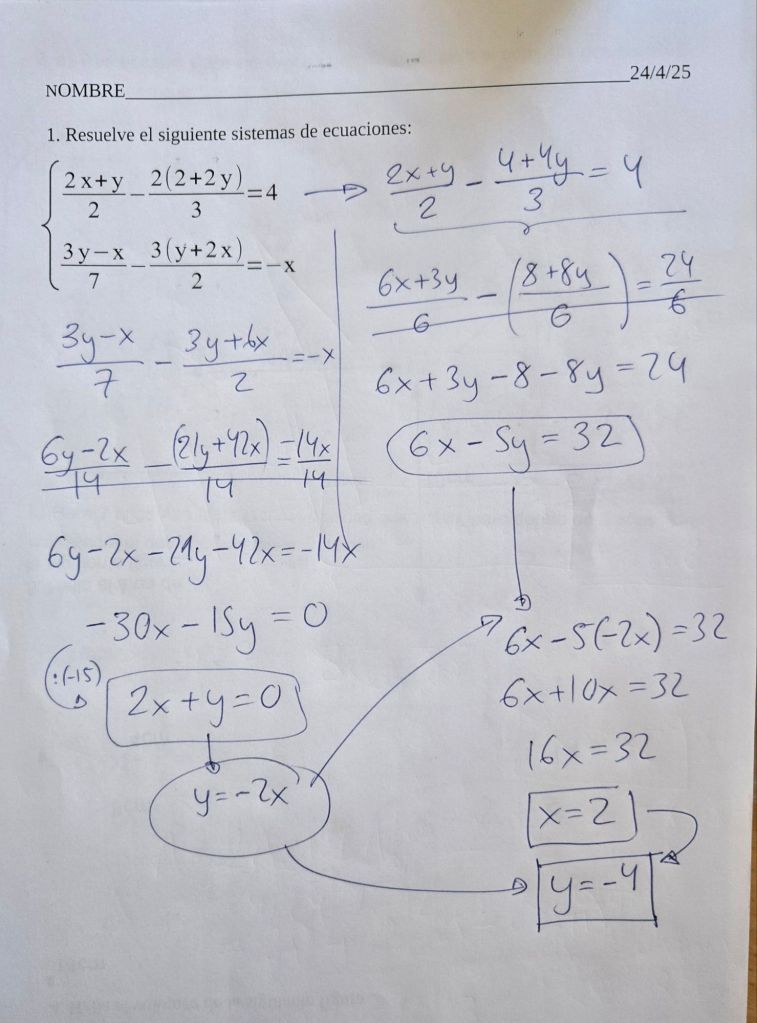 24/4/25
NOMBRE
1. Resuelve el siguiente sistemas de ecuaciones:
(2x+y)/2 − 2(2+2y)/3 = 4
(3y−x)/7 − 3(y+2x)/2 = −x
(2x+y)/2 − (4+4y)/3 = 4
(6x+3y)/6 − ((8+8y)/6) = 24/6
6x+3y−8−8y=24
6x−5y=32
(3y−x)/7 − (3y+6x)/2 = −x
(6y−2x)/14 − (21y+42x)/14 = −14x/14
6y−2x−21y−42x=−14x
−30x−15y=0
:(-15)
2x+y=0
y=−2x
6x−5(−2x)=32
6x+10x=32
16x=32
x=2
y=−4